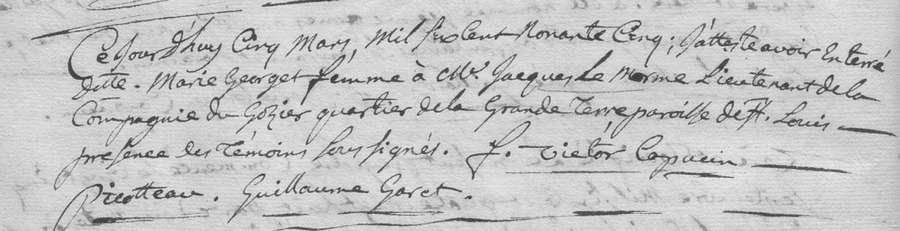 Ce Jour d'huy Cinq Mars, Mil six Cent Nonante Cinq; J'atteste avoir Enterré
ditte. Marie Georget femme à Mr. Jacques Le Merme Lieutenant de la
Compagnie du Gozier quartier de la Grande Terre paroisse de St. Louis
presence des Témoins sous signés. f. Victór Capucin
Picotteau. Guillaume Garet.